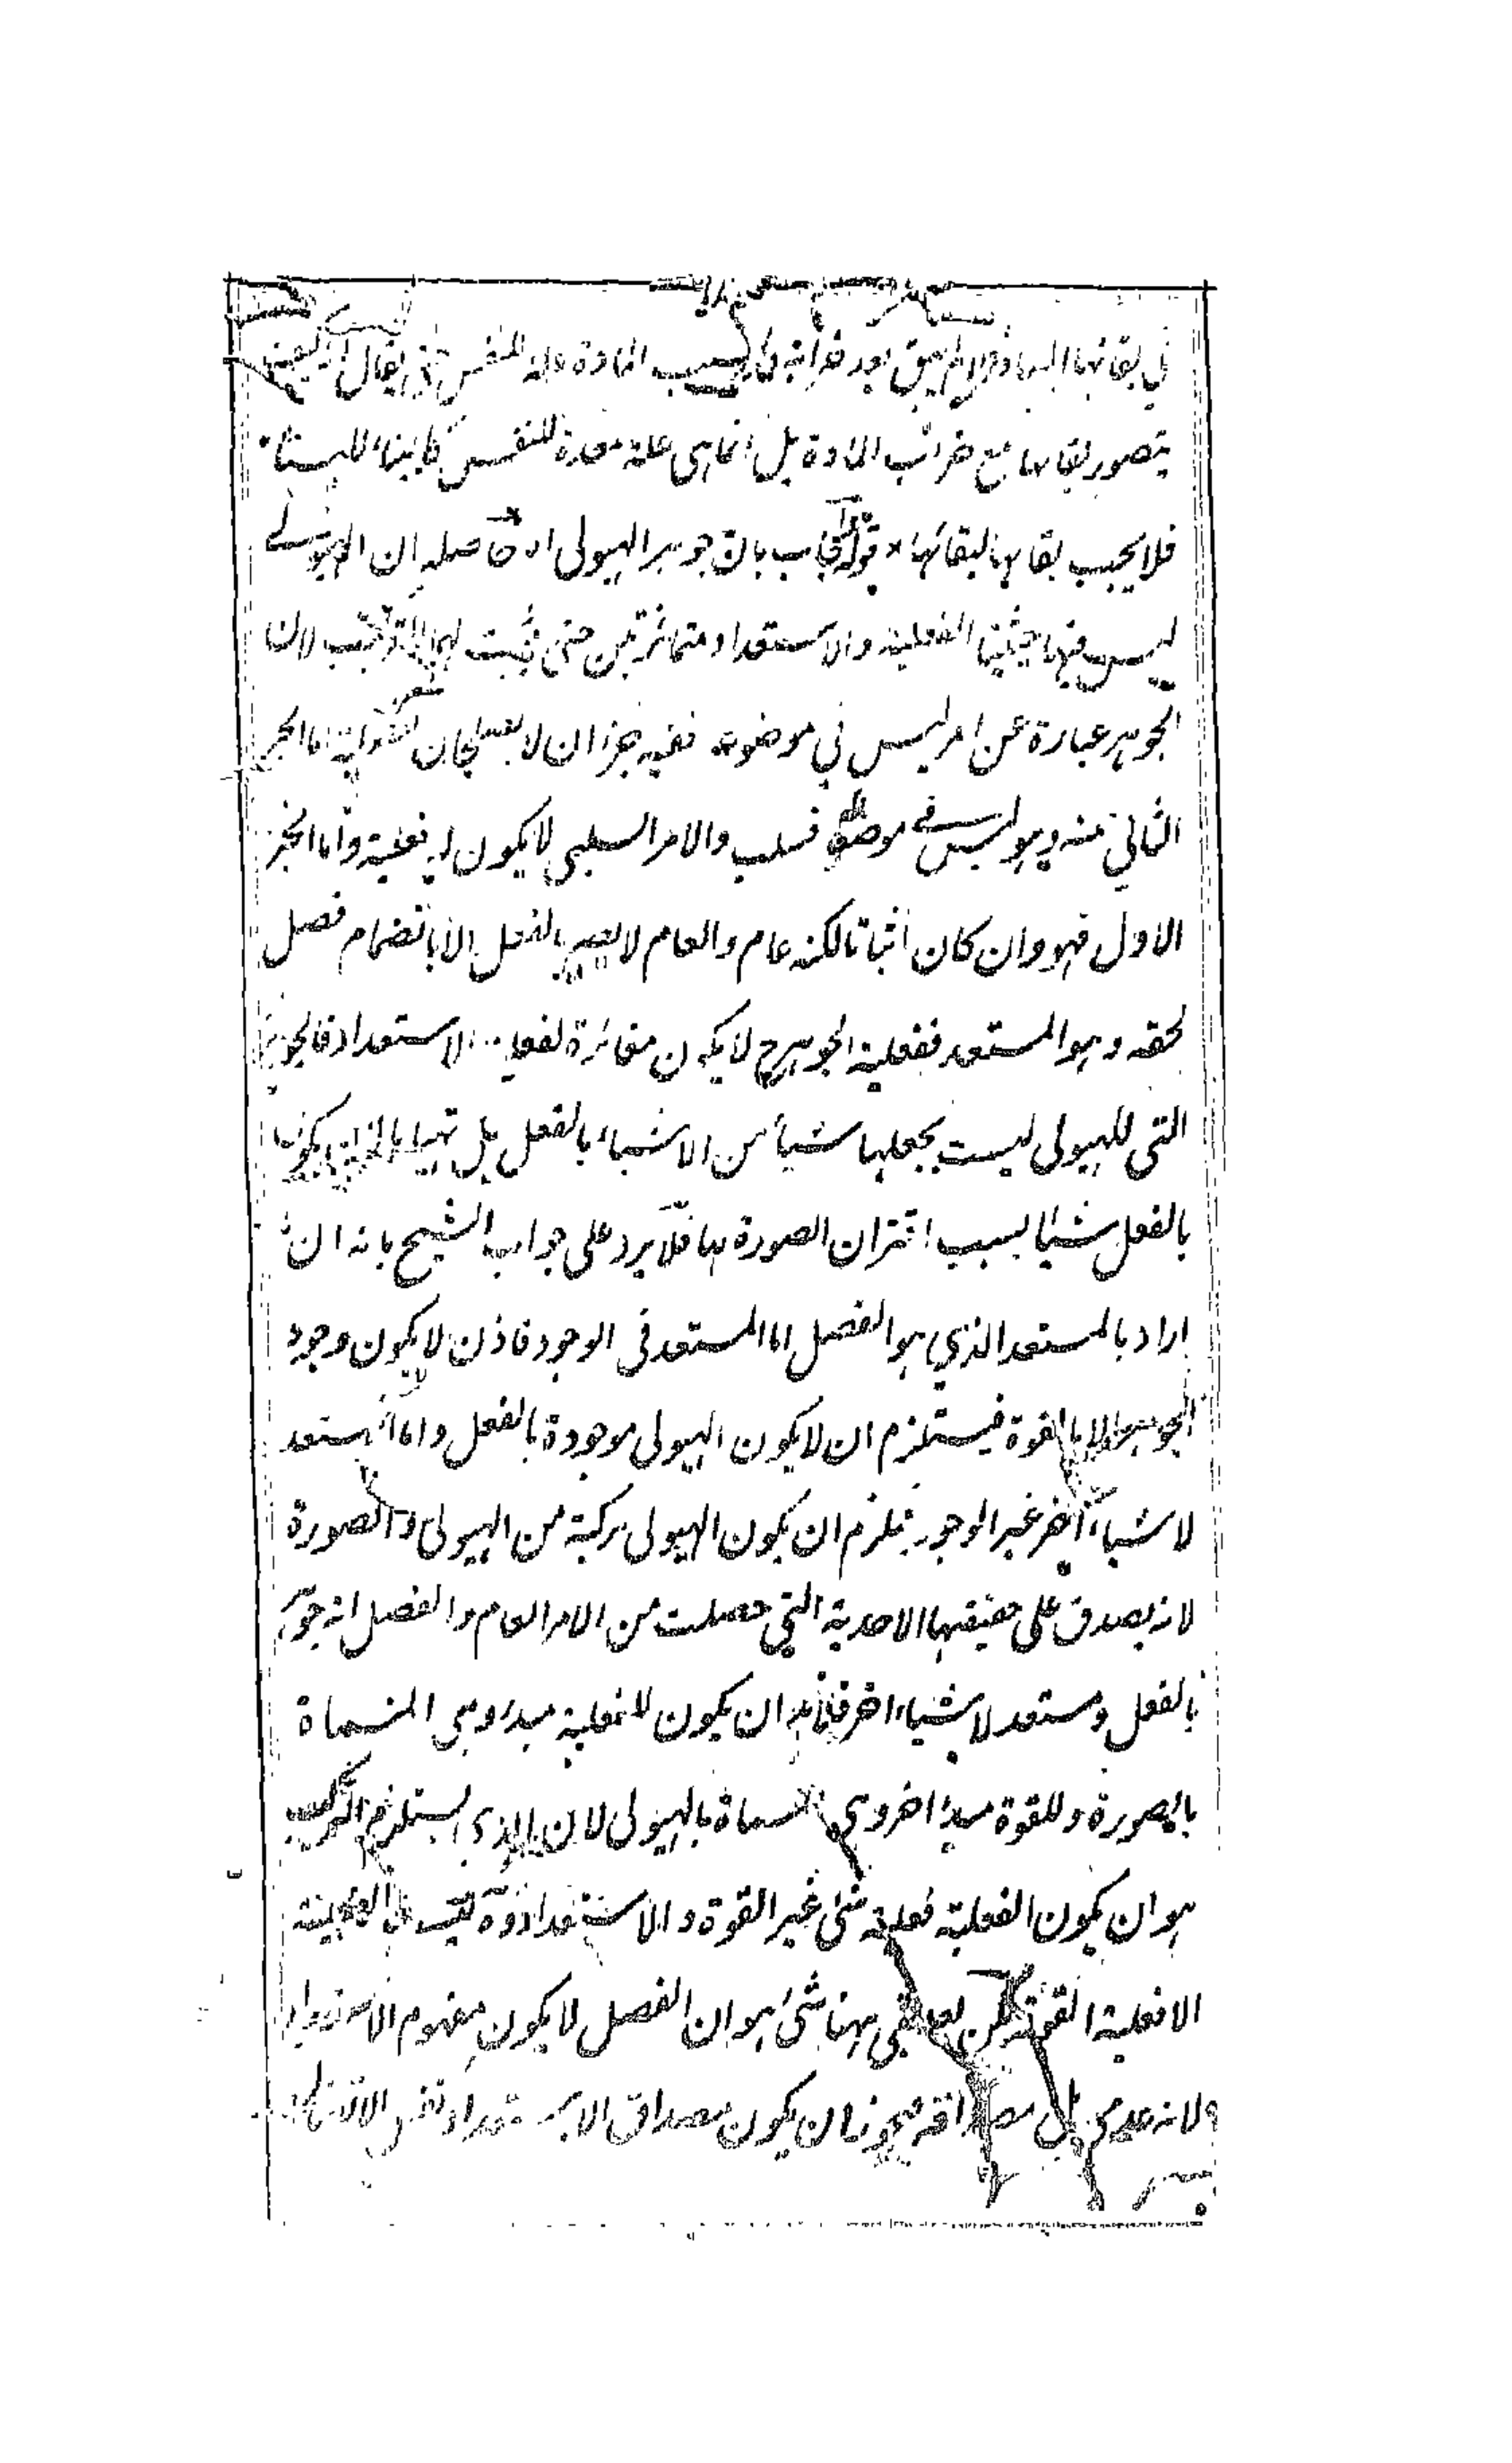 في بقائها المادة علة للنفس حتى يقال
يتصور بقاءها مع خراب المادة بل انما هى علة معدة للنفس كالبناء للبستان
فلا يجب بقاءها لبقائها قوله فاجاب بان جوهر الهيولى اه حاصله ان الهيولى
ليس فيها حيثيتا الفعلية والاستعداد متمائزتين حتى يثبت لها التركيب لان
الجوهر عبارة عن امر ليس في موضوع ففيه جزان لا يصلحان اما الجزء
الثاني منه وهو ليس في موضوع فسلب والامر السلبى لا يكون له فعلية واما الجزء
الاول فهو وان كان اثباتا لكنه عام والعام لا يصير بالفعل الا بانضمام فصل
لحقه وهو المستعد ففعلية الجوهر ح لا يكون مغائرة لفعلية الاستعداد فالجوهرية
التى للهيولى ليست يجعلها شيأ من الاشياء بالفعل بل تهيأها لان يكون
بالفعل شيئا بسبب اقتران الصورة بها فلا يرد على جواب الشيخ بانه ان
اراد بالمستعد الذي هو الفصل اما المستعد فى الوجود فاذن لا يكون وجود
الجوهر الا بالقوة فيستلزم ان لا يكون الهيولى موجودة بالفعل واما المستعد
لاشياء آخر غير الوجود فيلزم ان يكون الهيولى مركبة من الهيولى والصورة
لانه يصدق على حقيقتها الاحدية التي حصلت من الامر العام والفصل انه جوهر
بالفعل ومستعد لاشياء اخر فلابد ان يكون للفعلية مبدء وهى المسماة
بالصورة وللقوة مبدء اخر وهى المسماة بالهيولى لان الذي يستلزم التركيب
هو ان يكون الفعلية فعلية شئ غير القوة والاستعداد وههنا ليست الفعلية
الا فعلية القوة لكن بقى ههنا شئ هو ان الفصل لا يكون مفهوم الاستعداد
لانه عدمى بل مصداقه فيجوز ان يكون مصداق الاستعداد نفس الاتصال